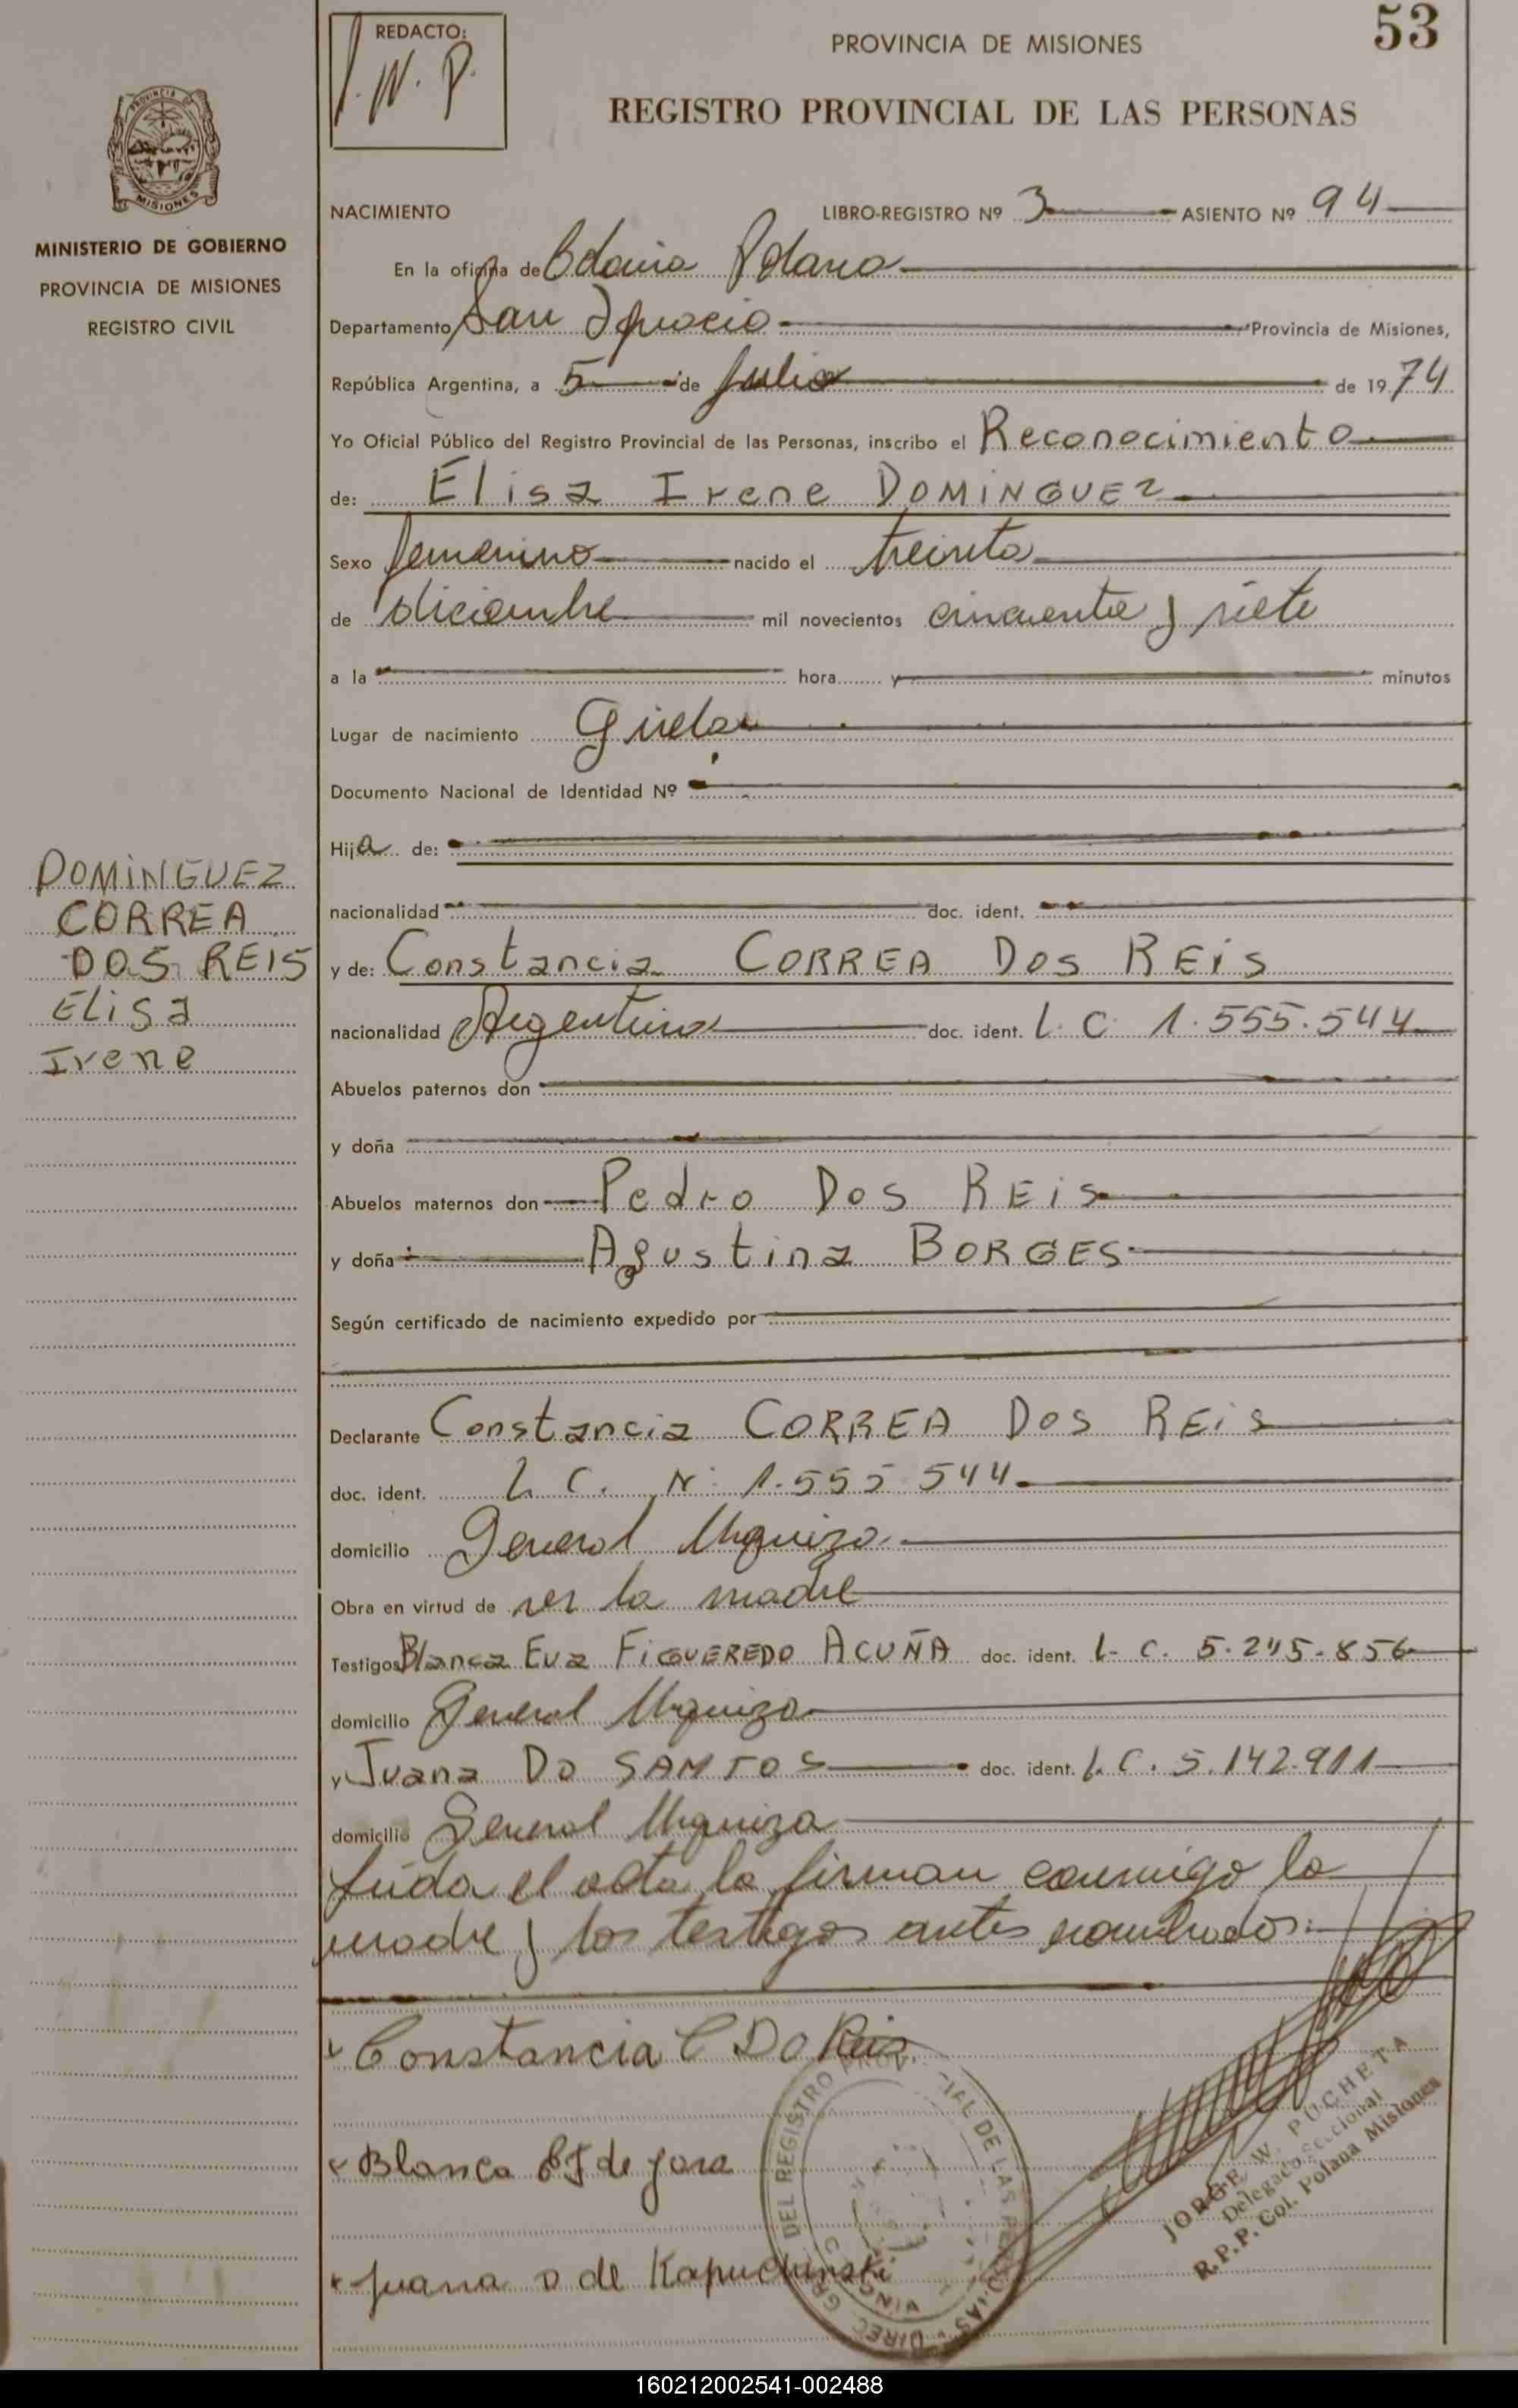 REDACTO:
J. W. P.
PROVINCIA DE MISIONES
53
REGISTRO PROVINCIAL DE LAS PERSONAS
PROVINCIA DE
MISIONES
MINISTERIO DE GOBIERNO
PROVINCIA DE MISIONES
REGISTRO CIVIL
NACIMIENTO LIBRO-REGISTRO Nº 3 ASIENTO Nº 94
En la oficina de Colonia Polana
Departamento San Ignacio Provincia de Misiones,
República Argentina, a 5 de Julio de 1974
Yo Oficial Público del Registro Provincial de las Personas, inscribo el Reconocimiento
de: Elisa Irene DOMINGUEZ
Sexo femenino nacido el treinta
de diciembre mil novecientos cincuenta y siete
a la hora y minutos
Lugar de nacimiento
Documento Nacional de Identidad Nº
Hija de:
nacionalidad doc. ident.
y de: Constancia CORREA DOS REIS
nacionalidad Argentina doc. ident. L. C. 1.555.544
Abuelos paternos don
y doña
Abuelos maternos don Pedro DOS REIS
y doña Agustina BORGES
Según certificado de nacimiento expedido por
Declarante Constancia CORREA DOS REIS
doc. ident. L. C. Nº 1.555.544
domicilio General Urquiza
Obra en virtud de ser la madre
Testigos Blanca Eva FIGUEREDO ACUÑA doc. ident. L. C. 5.245.856
domicilio General Urquiza
y Juana DO SANTOS doc. ident. L. C. 5.142.911
domicilio General Urquiza
leida el acta la firman conmigo la
madre y los testigos antes nombrados.
DOMINGUEZ
CORREA
DOS REIS
Elisa
Irene
Constancia C Do Reis
Blanca E F de Jara
Juana D de Kapuchinski
JORGE W. PUCHETA
Delegado Seccional
R.P.P. Col. Polana Misiones
160212002541-002488